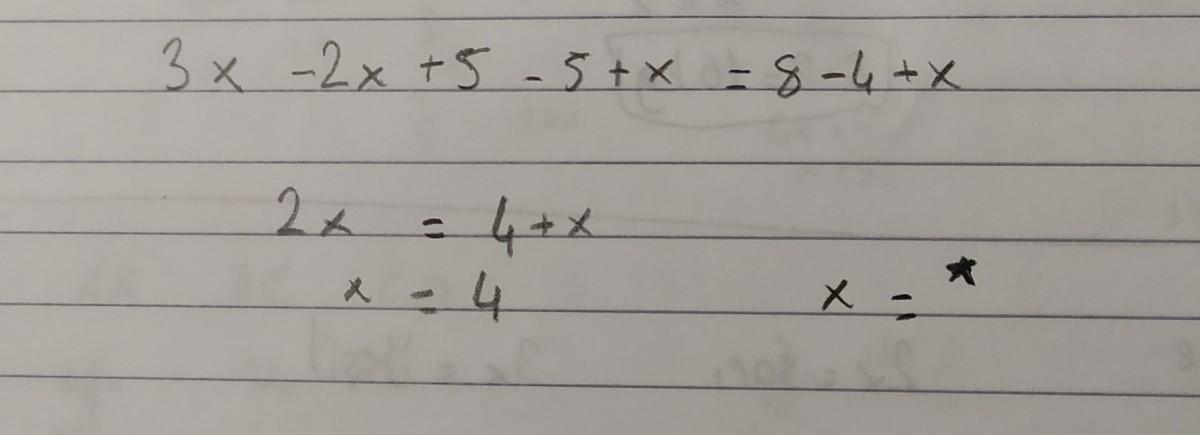 3x -2x +5 - 5 + x = 8 - 4 + x
2x = 4 + x
x = 4 x = *